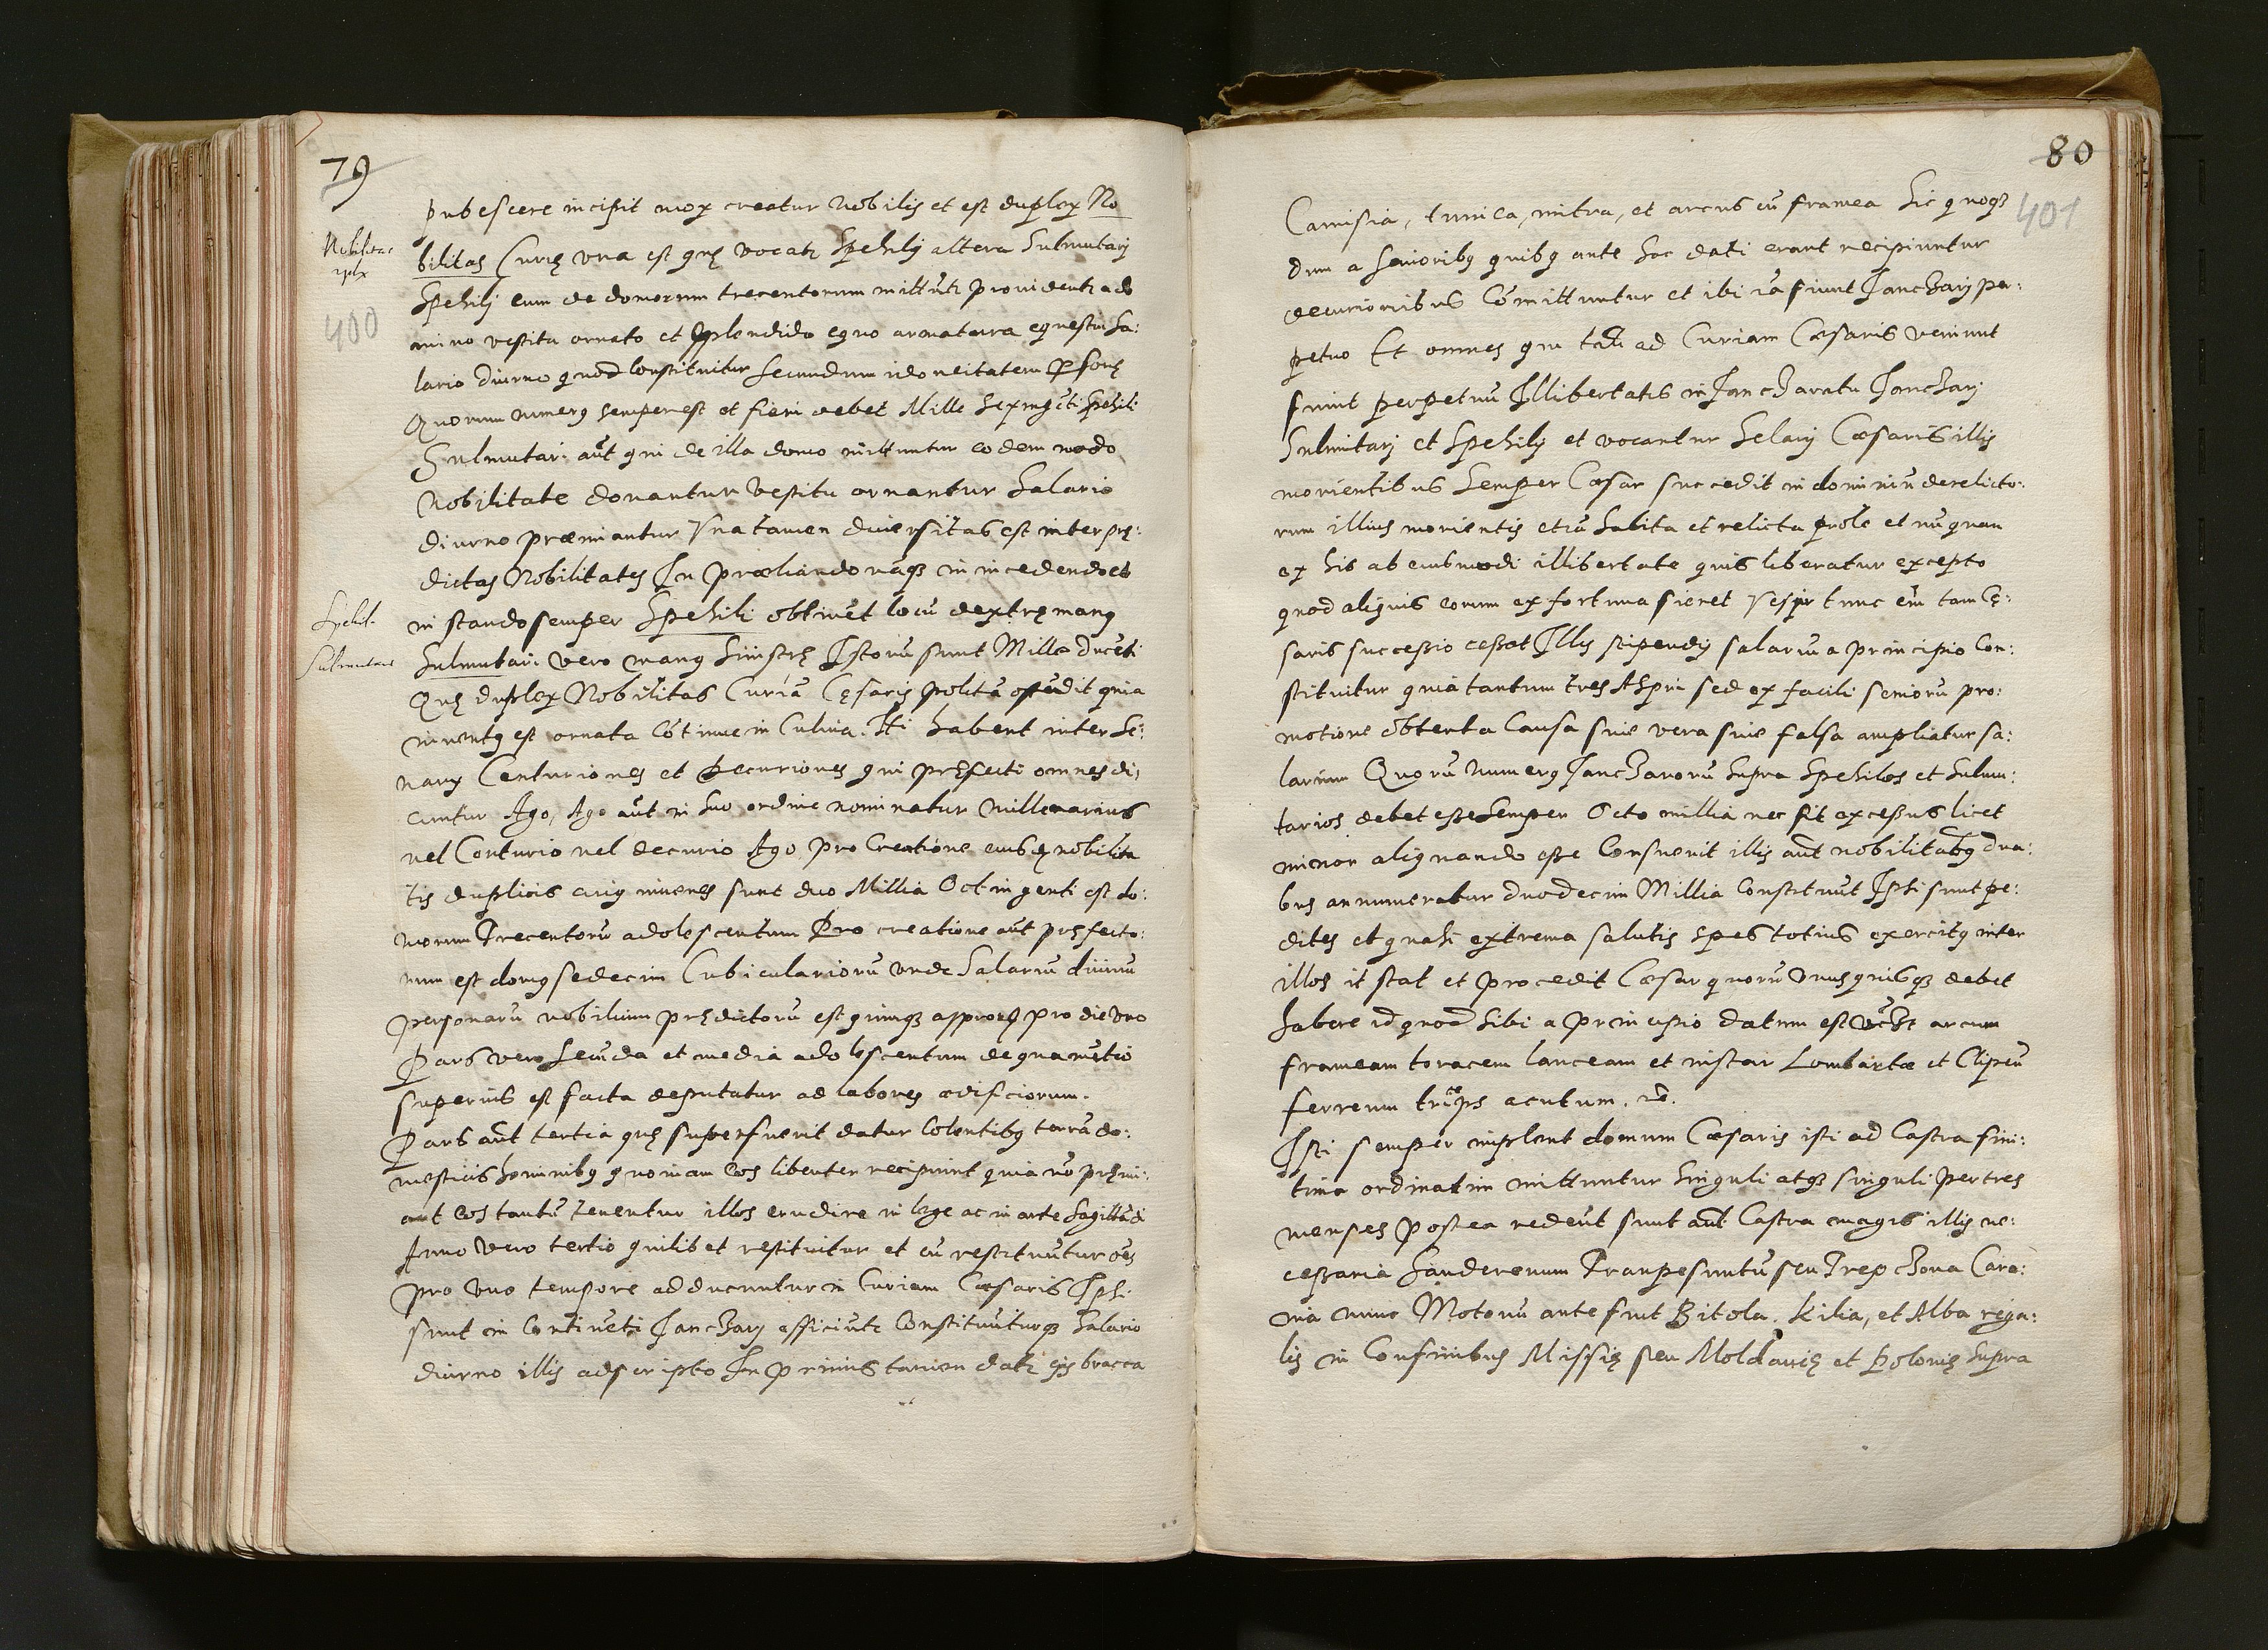 79
pubescere incipit mox creatur nobilis et est duplex No
Nobilitas
duplx
400
bilitas Curię vna est quę vocatr Spehilÿ altera Sulmutarÿ
Spehilÿ eum de domorum trecentorum mittūtr prouidentr a do
mino vestitu ornato et splendido equo armatura equestri sa:
lario diurno quod constituitur secundum idoneitatem Psonę
Quorum numerq semper est et fieri debet Mille sexingēti Spehili
Sulmutari aūt qui de illa domo mittuntur eodem modo
Nobilitate donantur vestitu ornantur Salario
diurno præmiantur Vna tamen diuersitas est inter prę:
dictas Nobilitates In præliando näqz in incedendo et
Spehil.
Sulmutarii
in stando semper Spehili obtinēt locū dextrę manq
Sulmutari vero manq sinistrę Istorū sunt Mille ducēti
Quę duplex Nobilitas Curiā Cęsaris politā ostēdit quia
iuuentq est ornata Cōtinue in Culina. Hi habent inter se:
narÿ Centuriones et Decuriones qui pręfecti omnes di,
cuntur Ago, Ago aūt in suo ordine nominatur millenarius
uel Centurio uel decurio Ago pro Creatione eiusdē nobilita
tis duplicis cuiq iuuenes sunt duo Millia Octingenti est do:
morum Trecentorū adolescentum Pro creatione aūt pręfecto:
rum est domq sedecim Cubiculariorū vnde Salariū diurnū
personarū nobilium prędictorū est quinqz asprorū pro die vno
Pars vero secūda et media adolescentum de qua mētio
superius est facta deputatur ad labores ædificiorum.
Pars aūt tertia quę superfuerit datur Colentibq terrā do:
mesticis hominibq quoniam eos libenter recipiunt quia nō pręmi:
ant eos tantū tenentur illos erudire in lege ac in arte sagittādi
Anno vero tertio quilibet restituitur et cū restituūtur oēs
pro vno tempore adducuntur in Curiam Cæsaris Ipsi
sunt in Continēti Janczarÿ efficiūtr Constituūturqz Salario
diurno illis adscripto In primis tamen datr eis bracca
80
401
Camisia, tunica, mitra, et arcus cū framea hic quoqz
dum a senioribq quibq ante hoc dati erant recipiuntur
decurionibus Cōmittuntur et ibi iā fiunt Janczarÿ per:
petuo Et omnes qui tālr ad Curiam Cæsaris veniunt
sunt perpetuū Illibertatis in Janczaratu Janczarÿ
Sulmitarÿ et Spehilÿ et vocantur Selarÿ Cæsaris illis
morientibus Semper Cæsar succedit in dominiū derelicto:
rum illius morientis etiā habita et relicta prole et nūquam
ex his ab eiusmodi illibertate quis liberatur excepto
quod aliquis eorum ex fortuna fieret Vesÿr tunc em̄ tam Cę:
saris successio cessat Illis stipendÿ salariū a principio Con:
stituitur quia tantum tres Aspri sed ex facili seniorū pro:
motione obtenta Causa siue vera siue falsa ampliatur sa:
larium Quorū numerq Janczarorū supra Spehilos et Sulmu:
tarios debet esse Semper Octo millia nec fit excessus licet
minor aliquando esse Consuerit illis aūt nobilitatibq dua:
bus annumeratur duodecim Millia Constituūt Ipsi sunt pe:
dites et quasi extrema salutis spes totius exercitq inter
illos it stat et procedit Cæsar quorū vnusquisqz debet
habere id quod sibi a principio datum est arcum
frameam toracem lanceam et instar Lombartæ et Clipeū
ferreum acutum.
Isti semper implent domum Cæsaris isti ad Castra fini:
tima ordinatim mittuntur singuli atqz singuli per tres
menses postea redeūt sunt aūt Castra magis illis ne:
cessaria Sanderenum Tranpesuntū seu Trepczona Cara:
nia nunc Motonū ante fuit Bitola. Kilia, et Alba rega:
lis in Confinibus Missię seu Moldauię et Polonię supra